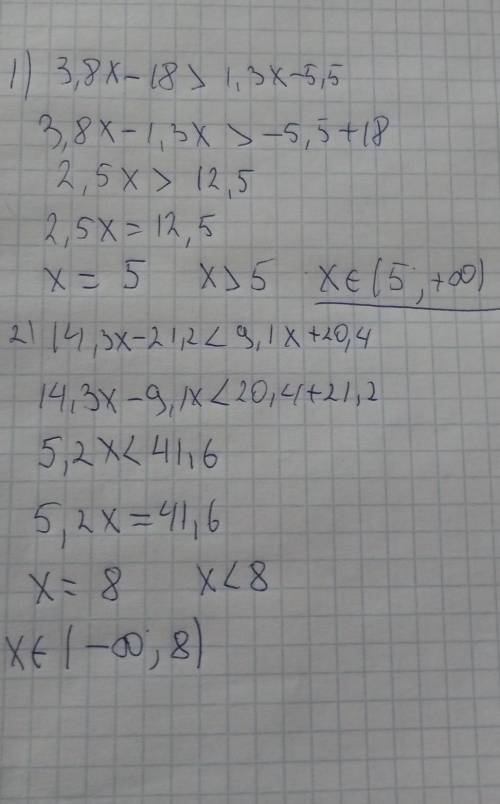 1) 3,8x-18> 1,3x-5,5
3,8x-1,3x >-5,5+18
2,5x> 12,5
2,5x=12,5
x= 5 x>5 x∈(5;+∞)
2) 14,3x-21,2<9,1x+20,4
14,3x-9,1x<20,4+21,2
5,2x<41,6
5,2x=41,6
x= 8 x<8
x∈(-∞;8)